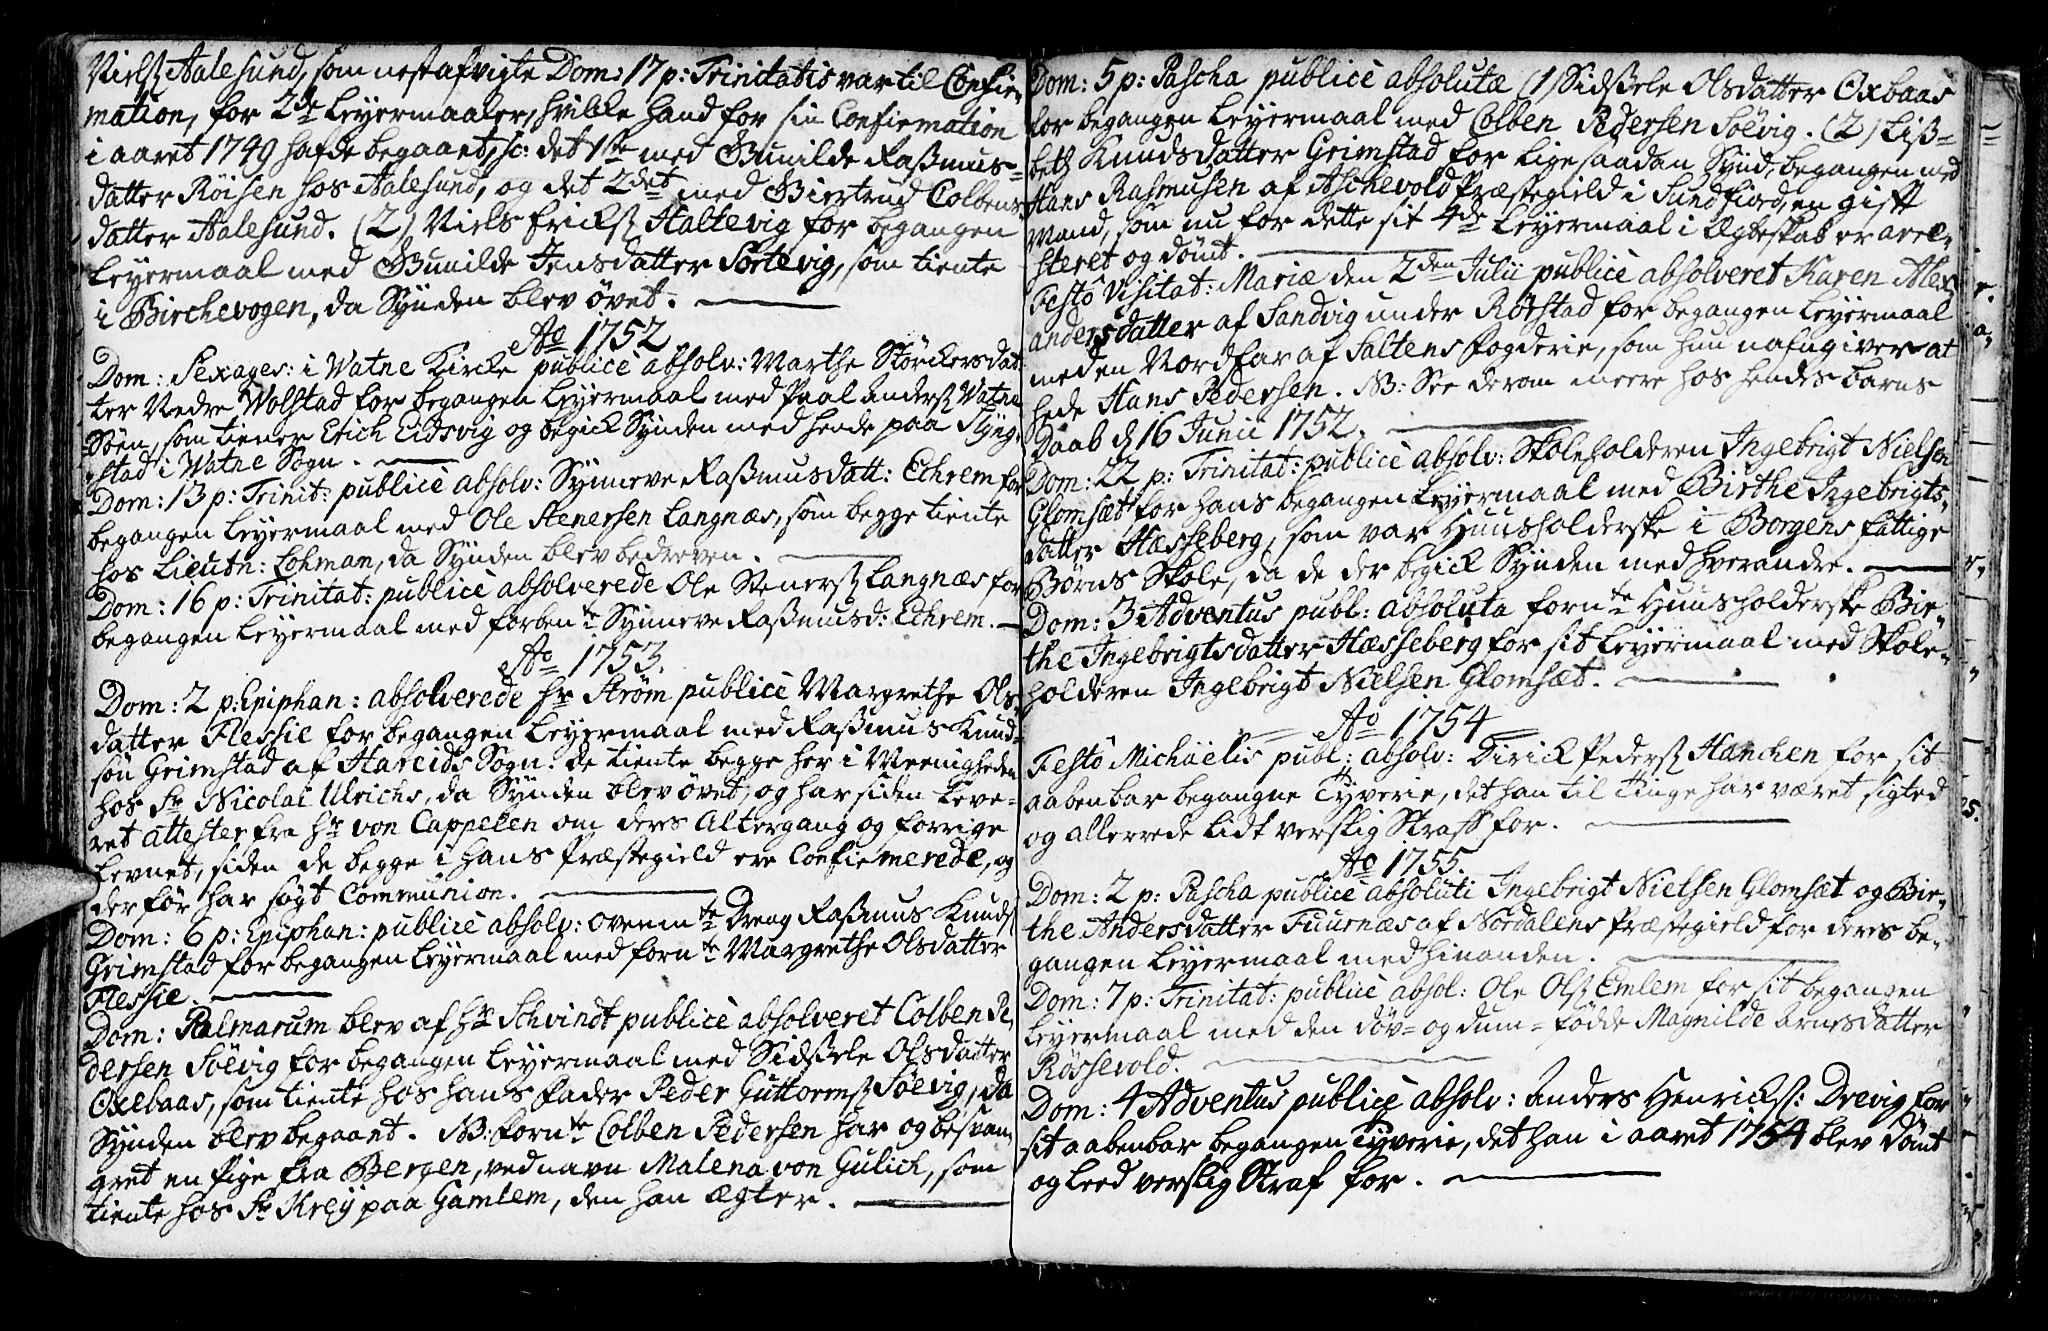 Nielsß Aalesund, som nest afvigte Dom: 17 p: Trinitatis var til Confir-
mation, for 2de Leyermaaler, hvilke hand for sin Confirmation
i aaret 1749 hafde begaaet, sc: det 1ste med Gunilde Raßmus-
datter Röisen hos Aalesund, og det 2det med Giertrud Colbens-
datter Aalesund. (2) Niels Erichsß Haltevig for begangen
Leyermaal med Gunilde Jensdatter Sortevig, som tiente
i Birchevogen, da Synden blev övet.
Ao 1752
Dom: Sexages: i Watne Kircke publicè absolv: Marthe Störckersdat-
ter Nedre Wolstad for begangen Leyermaal med Paal Andersß Watne
Söen, som tiener Erich Eidsvig og begick Synden med hende paa Slÿng-
stad i Watne Sogn.
Dom: 13 p: Trinit: publicè absolv: Synneve Raßmusdatt: Echrem for
begangen Leyermaal med Ole Stenersen Langnæs, som begge tiente
hos Lieutn: Lohman, da Synden blev bedreven.
Dom: 16 p: Trinitat: publicè absolverede Ole Stenersß Langnæs for
begangen Leyermaal med forbente Synneve Raßmusd: Echrem.
Ao 1753.
Dom: 2 p: Epiphan: absolverede Hr Ström publicè Margrethe Ols-
datter Flessie for begangen Leyermaal med Raßmus Knud-
søn Grimstad af Hareids Sogn. de tiente begge her i Meenigheden
hos Sr Nicolai Ulrichs, da Synden blev övet, og har siden leve-
ret attester fra Hr von Cappelen om deres Altergang og forrige
Levnet, siden de begge i hans Præstegield ere Confirmerede, og
der för har sögt Communion.
Dom: 6 p: Epiphan: publicè absolv: ovennte Dreng Raßmus Knudsß
Grimstad for begangen Leyermaal med fornte Margrethe Olsdatter
Flessie.
Dom: Palmarum blev af Hr Schvindt publicè absolveret Colben Pe-
dersen Söevig for begangen Leyermaal med Sidßele Olsdatter
Oxebaas, som tiente hos hans Fader Peder Guttormsß Söevig, da
Synden blev begaaet. NB: fornte Colben Pedersen har og besvan-
gret en Pige fra Bergen, ved navn Malena von Gulich, som
tiente hos Sr Kreÿ paa Gamlem, den han ægter.
Dom: 5 p: Pascha publicè absolutæ (1) Sidßele Olsdatter Oxbaas
for begangen Leyermaal med Colben Pedersen Söevig. (2) Liß-
beth Knudsdatter Grimstad for lige saadan Synd, begangen med
Hans Rasmusen af Aschevold Præstegield i Sundfiord, en gift
Mand, som nu for dette sit 4de Leyermaal i Ægteskab er arre-
steret og dömt.
Festo Visitat: Mariæ den 2den Julii publicè absolveret Karen Alex-
andersdatter af Sandvig under Röestad for begangen Leyermaal
med en Nordfar af Saltens Fogderie, som hun nafngiver at
hede Hans Pedersen. NB: See derom meere hos hendes barns
Daab d 16 Junii 1752.
Dom: 22 p: Trinitat: publicè absolv: Skoleholderen Ingebrigt Nielsen
Glomsæt for hans begangen Leyermaal med Birthe Ingebrigts-
datter Hæsseberg, som var Huusholderske i Borgens fattige
Börns Skole, da de der begick Synden med hverandre.
Dom: 3 Adventus publ: absoluta fornte Huusholderske Bir-
the Ingebrigtsdatter Hæsseberg for sit Leyermaal med Skole-
holderen Ingebrigt Nielsen Glomsæt.
Ao 1754
Festo Michaelis publ: absolv: Dirick Pedersß Hanchen for sit
aabenbar begangne Tyverie, det han til Tinge har været sigted
og allerrede lidt verslig Straff for.
Ao 1755.
Dom: 2 p: Pascha publicè absoluti Ingebrigt Nielsen Glomsæt og Bir-
the Andersdatter Fuurnæs af Nordalens Præstegield for deres be-
gangen Leyermaal med hinanden.
Dom: 7 p: Trinitat: publicè absol: Ole Olsß Emlem for sit begangen
Leyermaal med den döv- og dum- födde Magnilde Arnesdatter
Rössevold.
Dom: 4 Adventus publicè absolv: Anders Henricksß: Drevig for
sit aabenbar begangen Tyverie, det han i aaret 1754 blev dömt
og leed verslig Straf for.